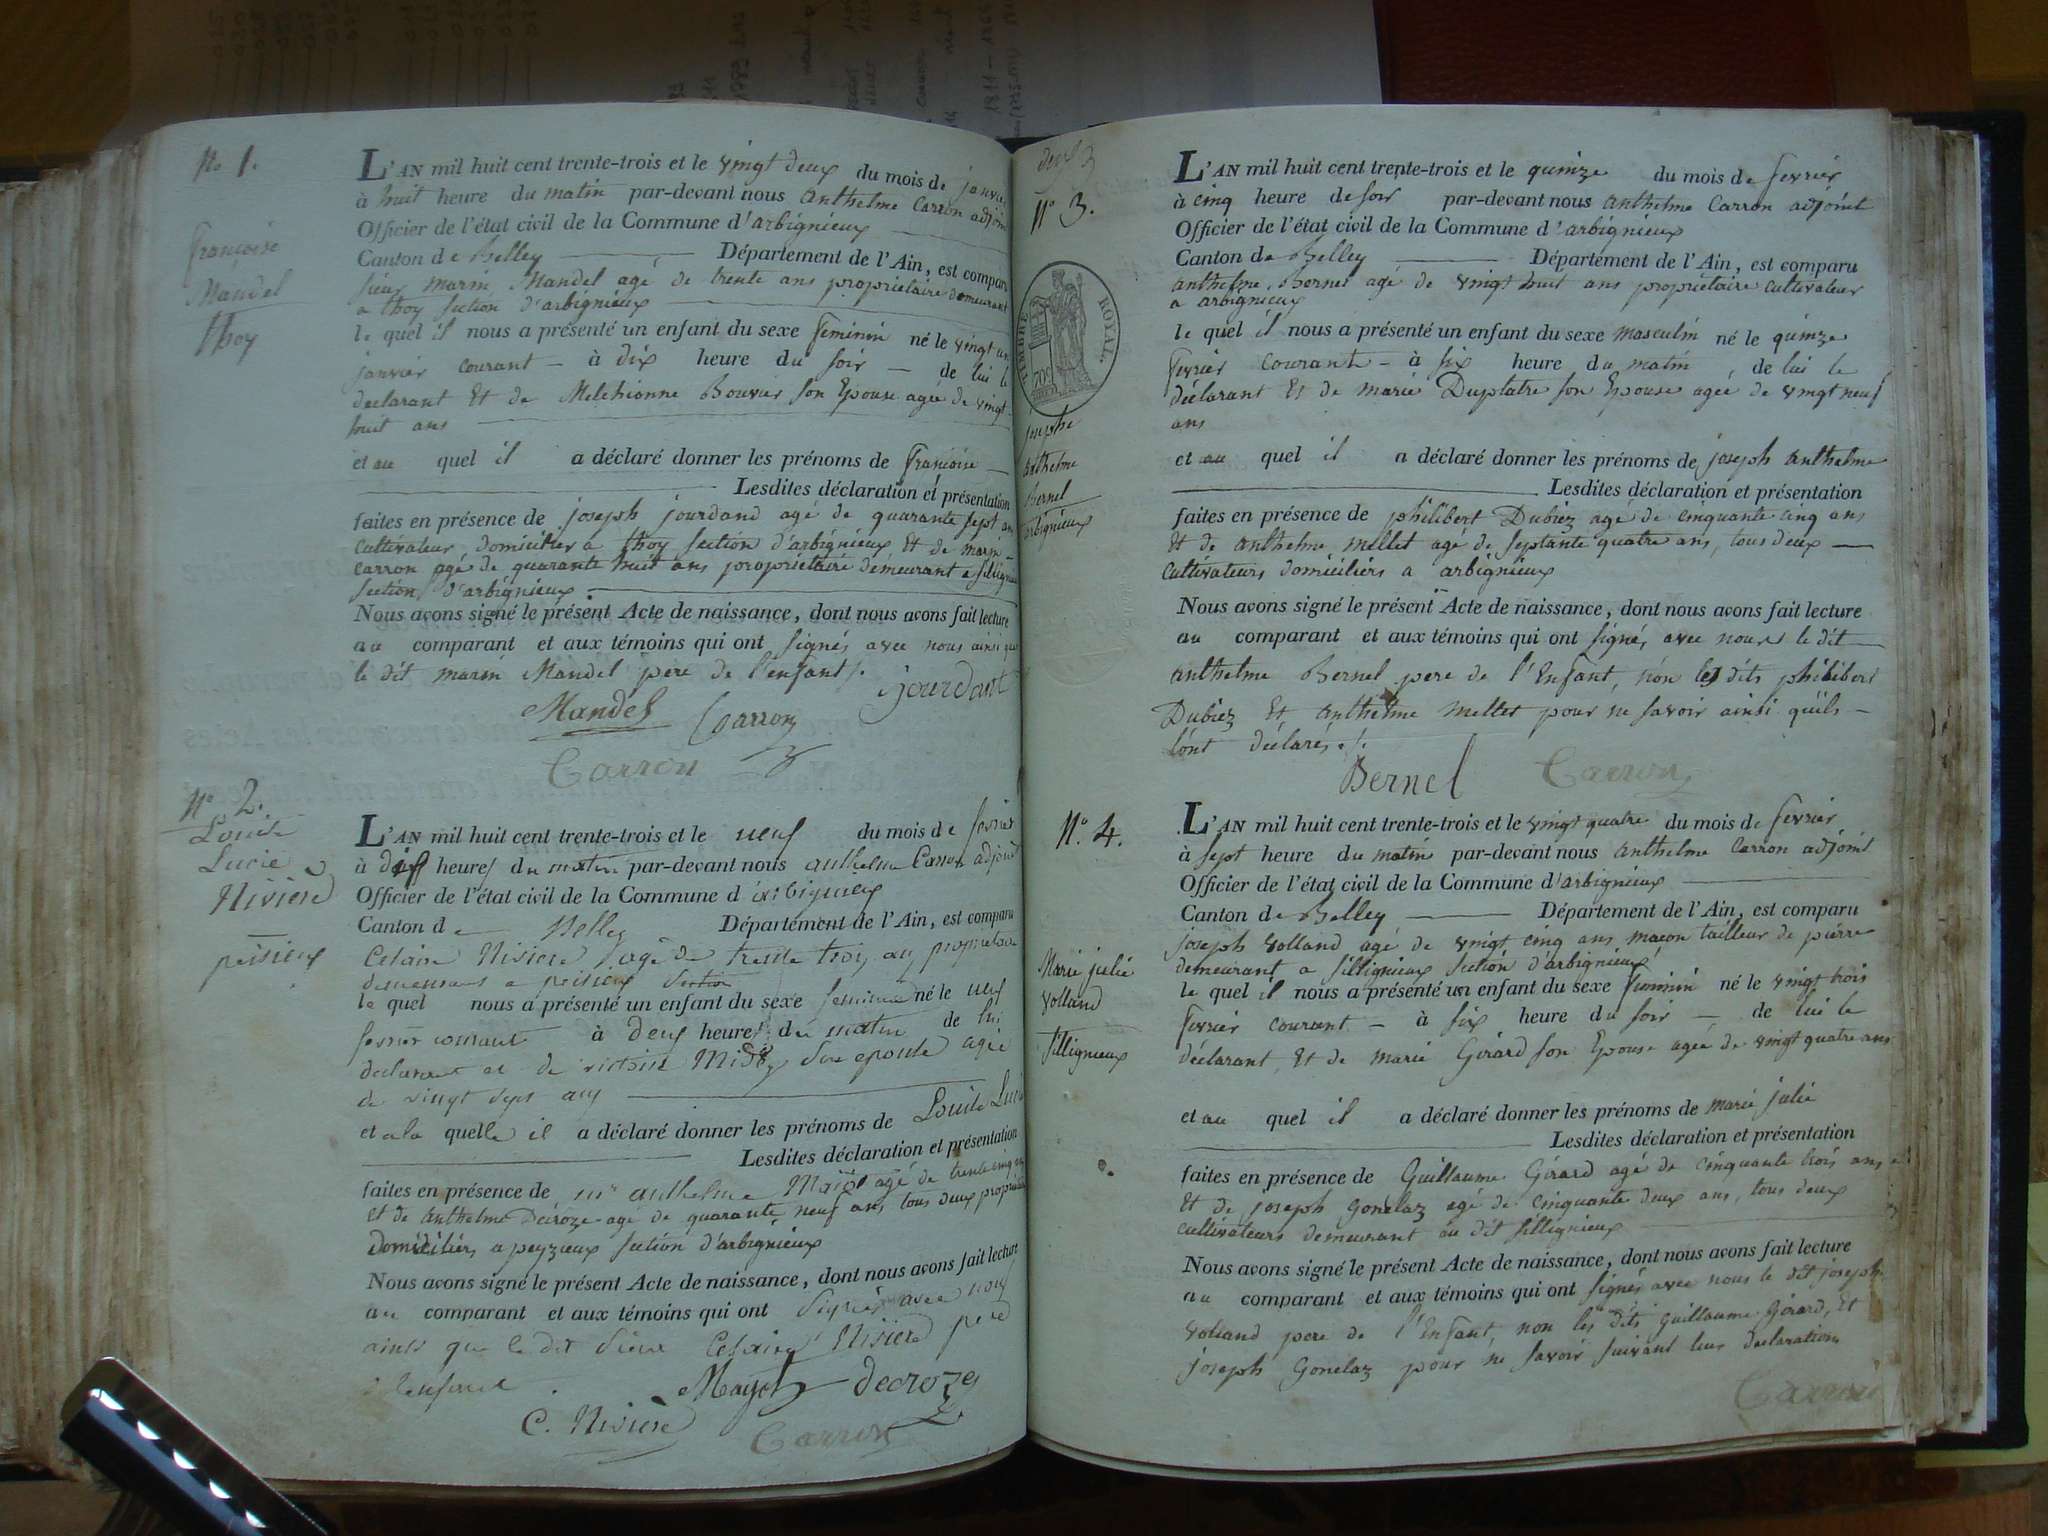 N° 1.
Françoise
Mandel
thoy
L'AN mil huit cent trente-trois et le vingt deux du mois de janvier
à huit heure du matin par-devant nous anthelme Carron adjoint
Officier de l'état civil de la Commune d'arbignieux
Canton de Belley Département de l'Ain, est comparu
sieur marin Mandel agé de trente ans propriétaire demeurant
a thoy section d'arbignieux
le quel il nous a présenté un enfant du sexe feminin né le vingt un
janvier courant - à dix heure du soir - de lui le
declarant et de Melchionne Bouvier son Epouse agée de vingt
huit ans
et au quel il a déclaré donner les prénoms de françoise
Lesdites déclaration et présentation
faites en présence de joseph jourdand agé de quarante sept ans
cultivateur domicilier a thoy section d'arbignieux et de marin
carron agé de quarante huit ans propriétaire demeurant a sillignieux
section d'arbignieux
Nous avons signé le présent Acte de naissance, dont nous avons fait lecture
au comparant et aux témoins qui ont signés avec nous ainsi que
le dit marin Mandel pere de l'enfant /.
Mandel Carron jourdant
Carron
N° 2.
Louise
Lucie
Nivière
peisieux
L'AN mil huit cent trente-trois et le neuf du mois de fevrier
à dix heures du matin par-devant nous anthelme Carron adjoint
Officier de l'état civil de la Commune d'arbignieux
Canton de Belley Département de l'Ain, est comparu
Cesaire Niviere agé de trente trois ans propriétaire
demeurant a peisieux section
le quel nous a présenté un enfant du sexe feminin né le neuf
fevrier courant à deux heures du matin de lui
declarant et de victoire son epouse agée
de vingt sept ans
et a la quelle il a déclaré donner les prénoms de Louise Lucie
Lesdites déclaration et présentation
faites en présence de mr anthelme agé de trente cinq ans
et de anthelme Decroze agé de quarante neuf ans tous deux propriétaires
domiciliés a peyzieux section d'arbignieux
Nous avons signé le présent Acte de naissance, dont nous avons fait lecture
au comparant et aux témoins qui ont signés avec nous
ainsi que le dit sieur Cesaire Niviere pere
de l'enfant.
decroze
C. Nivière
Carron
N° 3.
TIMBRE ROYAL.
70c
josephe
anthelme
Bernel
arbignieux
L'AN mil huit cent trente-trois et le quinze du mois de fevrier
à cinq heure de soir par-devant nous anthelme Carron adjoint
Officier de l'état civil de la Commune d'arbignieux
Canton de Belley Département de l'Ain, est comparu
anthelme Bernel agé de vingt huit ans propriétaire cultivateur
a arbignieux
le quel il nous a présenté un enfant du sexe masculin né le quinze
fevrier courant - à six heure du matin de lui le
déclarant et de marie Duplatre son Epouse agée de vingt neuf
ans
et au quel il a déclaré donner les prénoms de joseph anthelme
Lesdites déclaration et présentation
faites en présence de philibert Dubiez agé de cinquante cinq ans
et de anthelme mellet agé de septante quatre ans, tous deux
cultivateurs domiciliers a arbignieux
Nous avons signé le présent Acte de naissance, dont nous avons fait lecture
au comparant et aux témoins qui ont signés avec nous le dit
anthelme Bernel pere de l'Enfant, non les dits philibert
Dubiez et anthelme mellet pour ne savoir ainsi qu'ils
l'ont déclarés./.
Bernel Carron
N° 4.
Marie julie
volland
Sillignieux
L'AN mil huit cent trente-trois et le vingt quatre du mois de fevrier
à sept heure du matin par-devant nous anthelme Carron adjoint
Officier de l'état civil de la Commune d'arbignieux
Canton de Belley Département de l'Ain, est comparu
joseph volland agé de vingt cinq ans maçon tailleur de pierre
demeurant a sillignieux section d'arbignieux
le quel il nous a présenté un enfant du sexe feminin né le vingt trois
fevrier courant - à six heure du soir - de lui le
déclarant, et de marie Girard son Epouse agée de vingt quatre ans
et au quel il a déclaré donner les prénoms de marie julie
Lesdites déclaration et présentation
faites en présence de Guillaume Girard agé de cinquante trois ans
et de joseph Gonelaz agé de cinquante deux ans, tous deux
cultivateurs demeurant au dit sillignieux
Nous avons signé le présent Acte de naissance, dont nous avons fait lecture
au comparant et aux témoins qui ont signés avec nous le dit joseph
volland pere de l'Enfant, non les dits guillaume Girard, et
joseph Gonelaz pour ne savoir suivant leur declaration
Carron